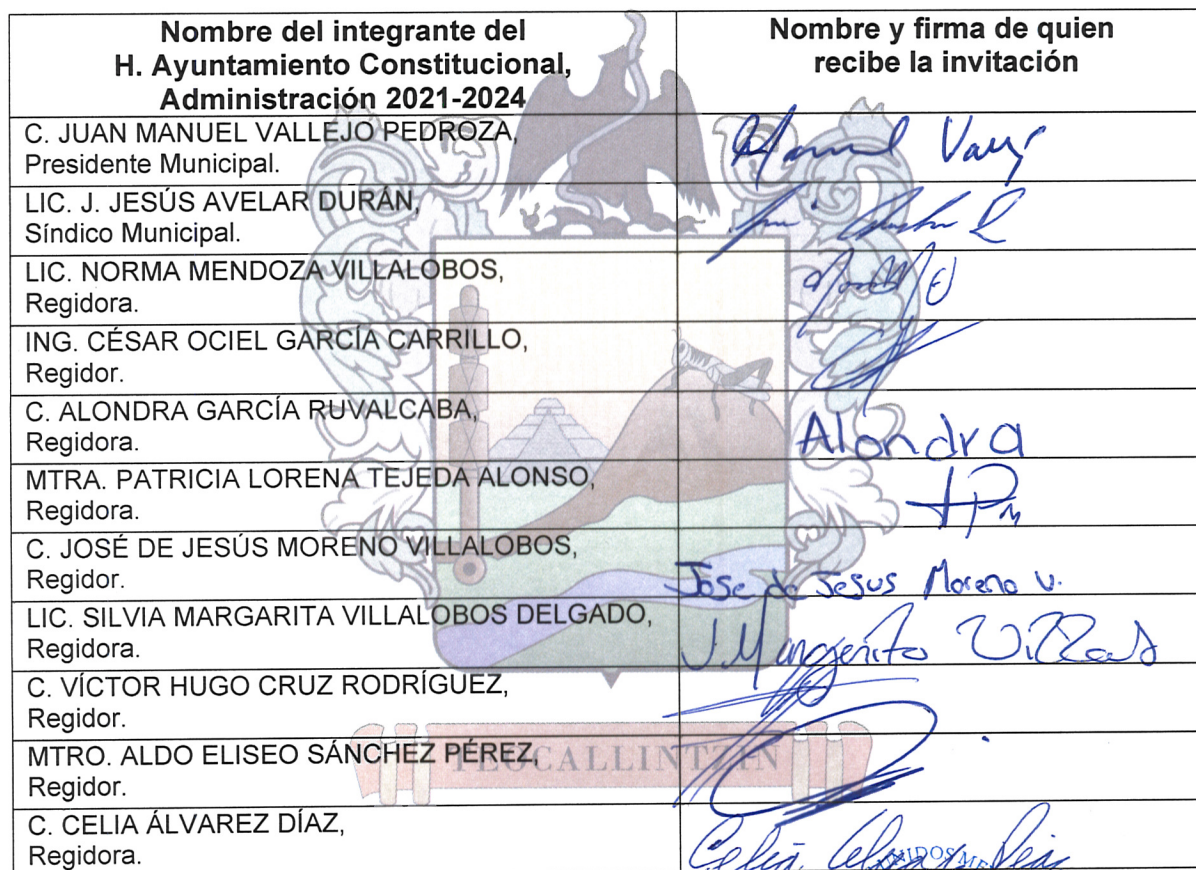 Nombre del integrante del
H. Ayuntamiento Constitucional,
Administración 2021-2024
Nombre y firma de quien
recibe la invitación
C. JUAN MANUEL VALLEJO PEDROZA,
Presidente Municipal.
Manuel
LIC. J. JESÚS AVELAR DURÁN,
Síndico Municipal.
LIC. NORMA MENDOZA VILLALOBOS,
Regidora.
ING. CÉSAR OCIEL GARCÍA CARRILLO,
Regidor.
C. ALONDRA GARCÍA RUVALCABA,
Regidora.
Alondra
MTRA. PATRICIA LORENA TEJEDA ALONSO,
Regidora.
C. JOSÉ DE JESÚS MORENO VILLALOBOS,
Regidor.
Jose de Jesus Moreno V.
LIC. SILVIA MARGARITA VILLALOBOS DELGADO,
Regidora.
C. VÍCTOR HUGO CRUZ RODRÍGUEZ,
Regidor.
MTRO. ALDO ELISEO SÁNCHEZ PÉREZ,
Regidor.
TEOCALLINTZIN
C. CELIA ÁLVAREZ DÍAZ,
Regidora.
Celia